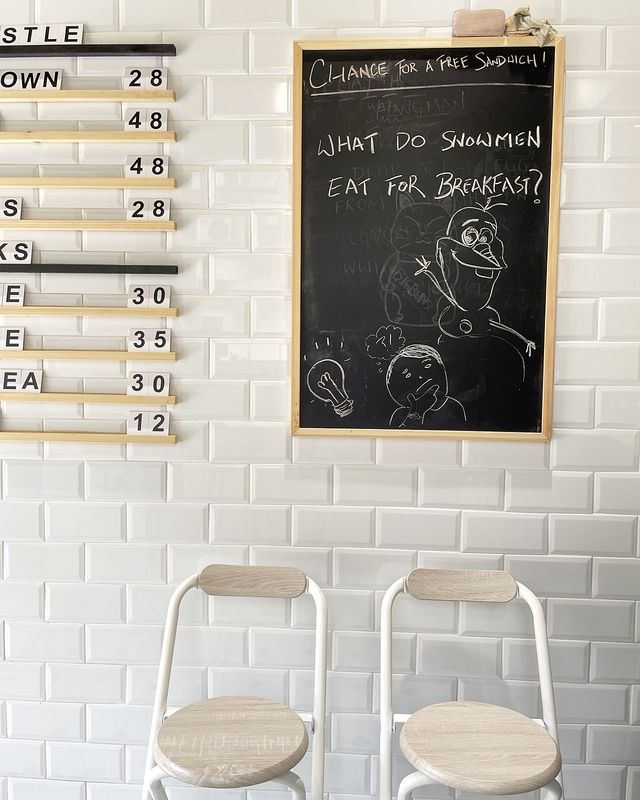 STLE
OWN 28
48
48
S 28
KS
E 30
E 35
EA 30
12
CHANCE FOR A FREE SANDWICH!
WHAT DO SNOWMEN
EAT FOR BREAKFAST?
?!